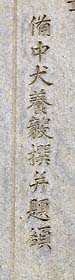 備中犬養毅撰并題額